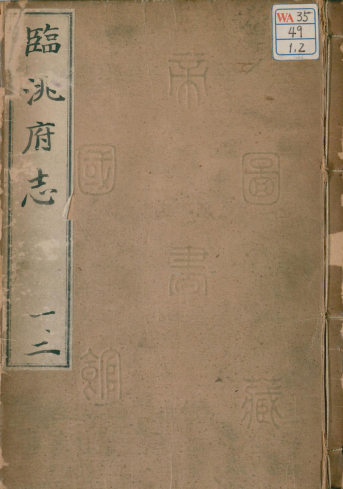 臨洮府志 一、二
WA35
49
1.2
帝國圖書館藏